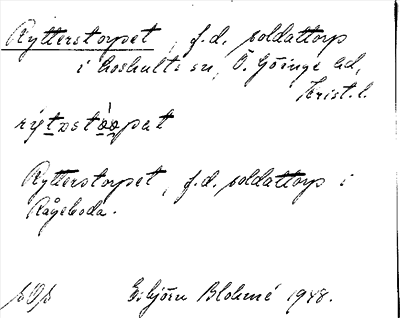 Rytterstorpet, f.d. soldattorp
i Loshults sn, Ö. Göinge hd,
Krist. l.
Rytterstorpet, f.d. soldattorp i
Rågeboda.
Esbjörn Blohmé 1948.